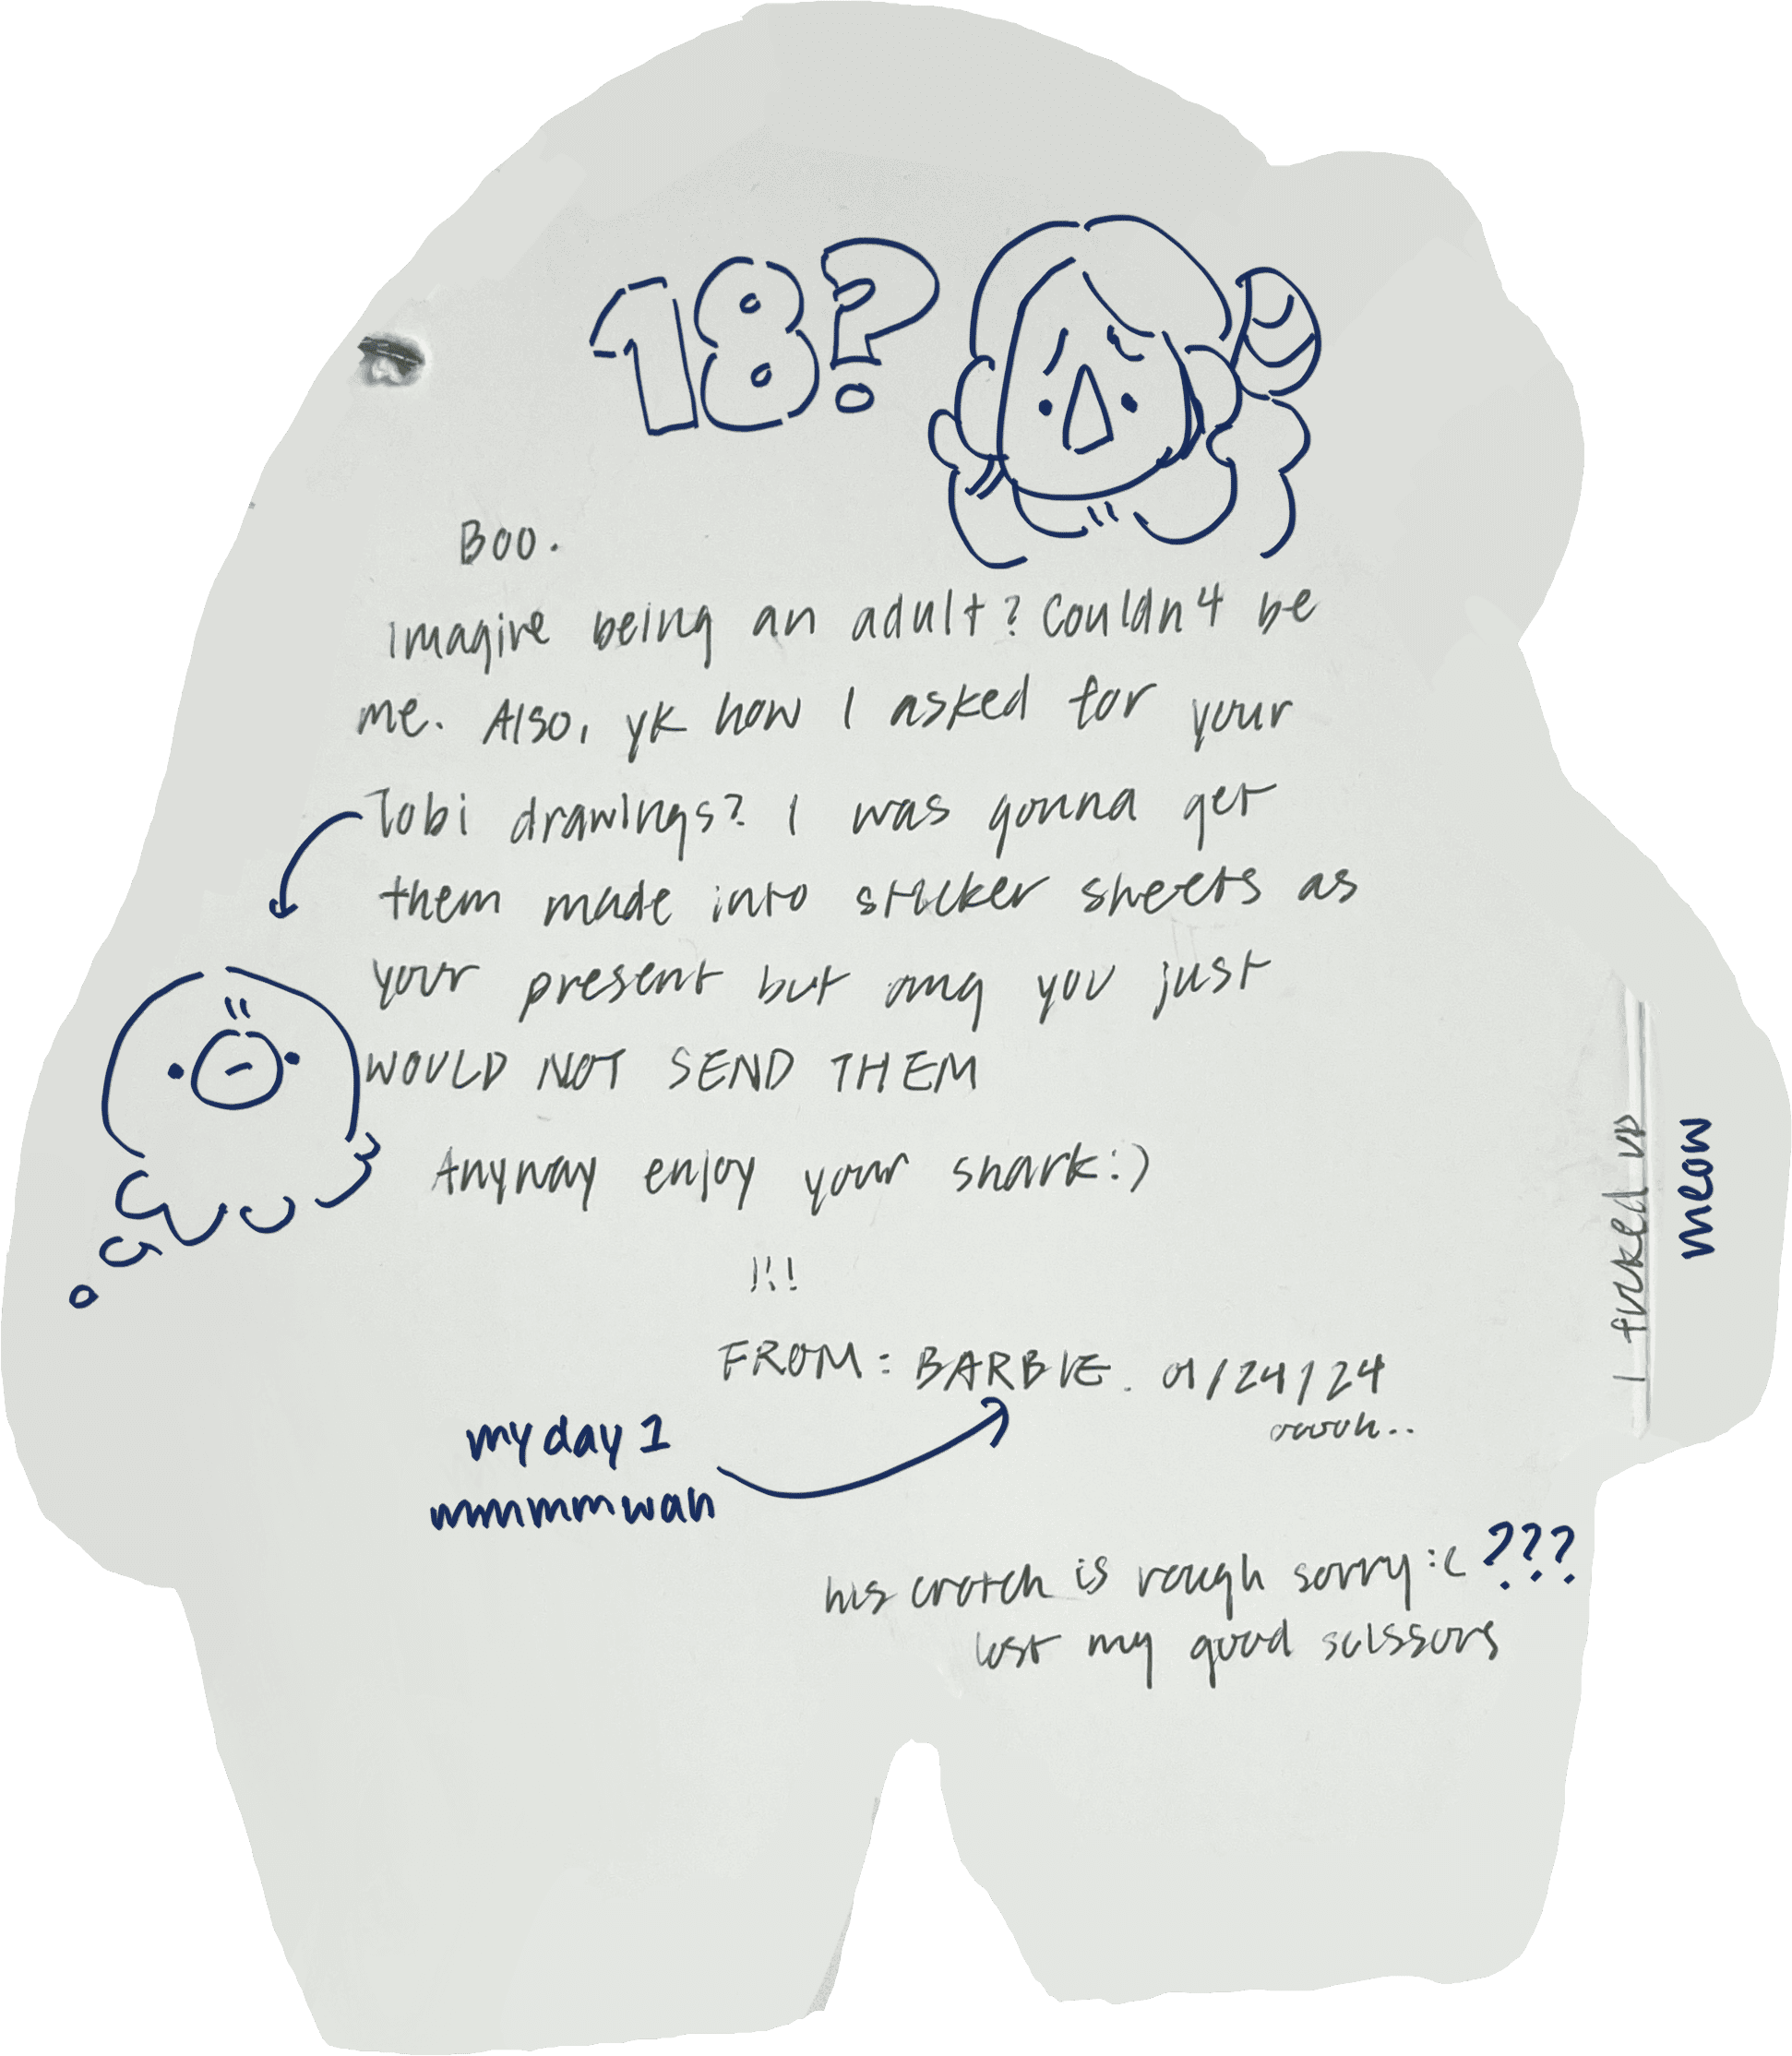 18?
BOO.
imagine being an adult? Couldn4 be
me. Also, yk how I asked for your
Tobi drawings? I was gonna get
them made into sticker sheets as
your present but omg you just
WOULD NOT SEND THEM
Anyway enjoy your shark:)
!!!
FROM: BARBIE. 01/24/24
ooooh..
my day 1
mmmmmwah
his crotch is rough sorry :( ???
lost my good scissors
I fucked up
meow